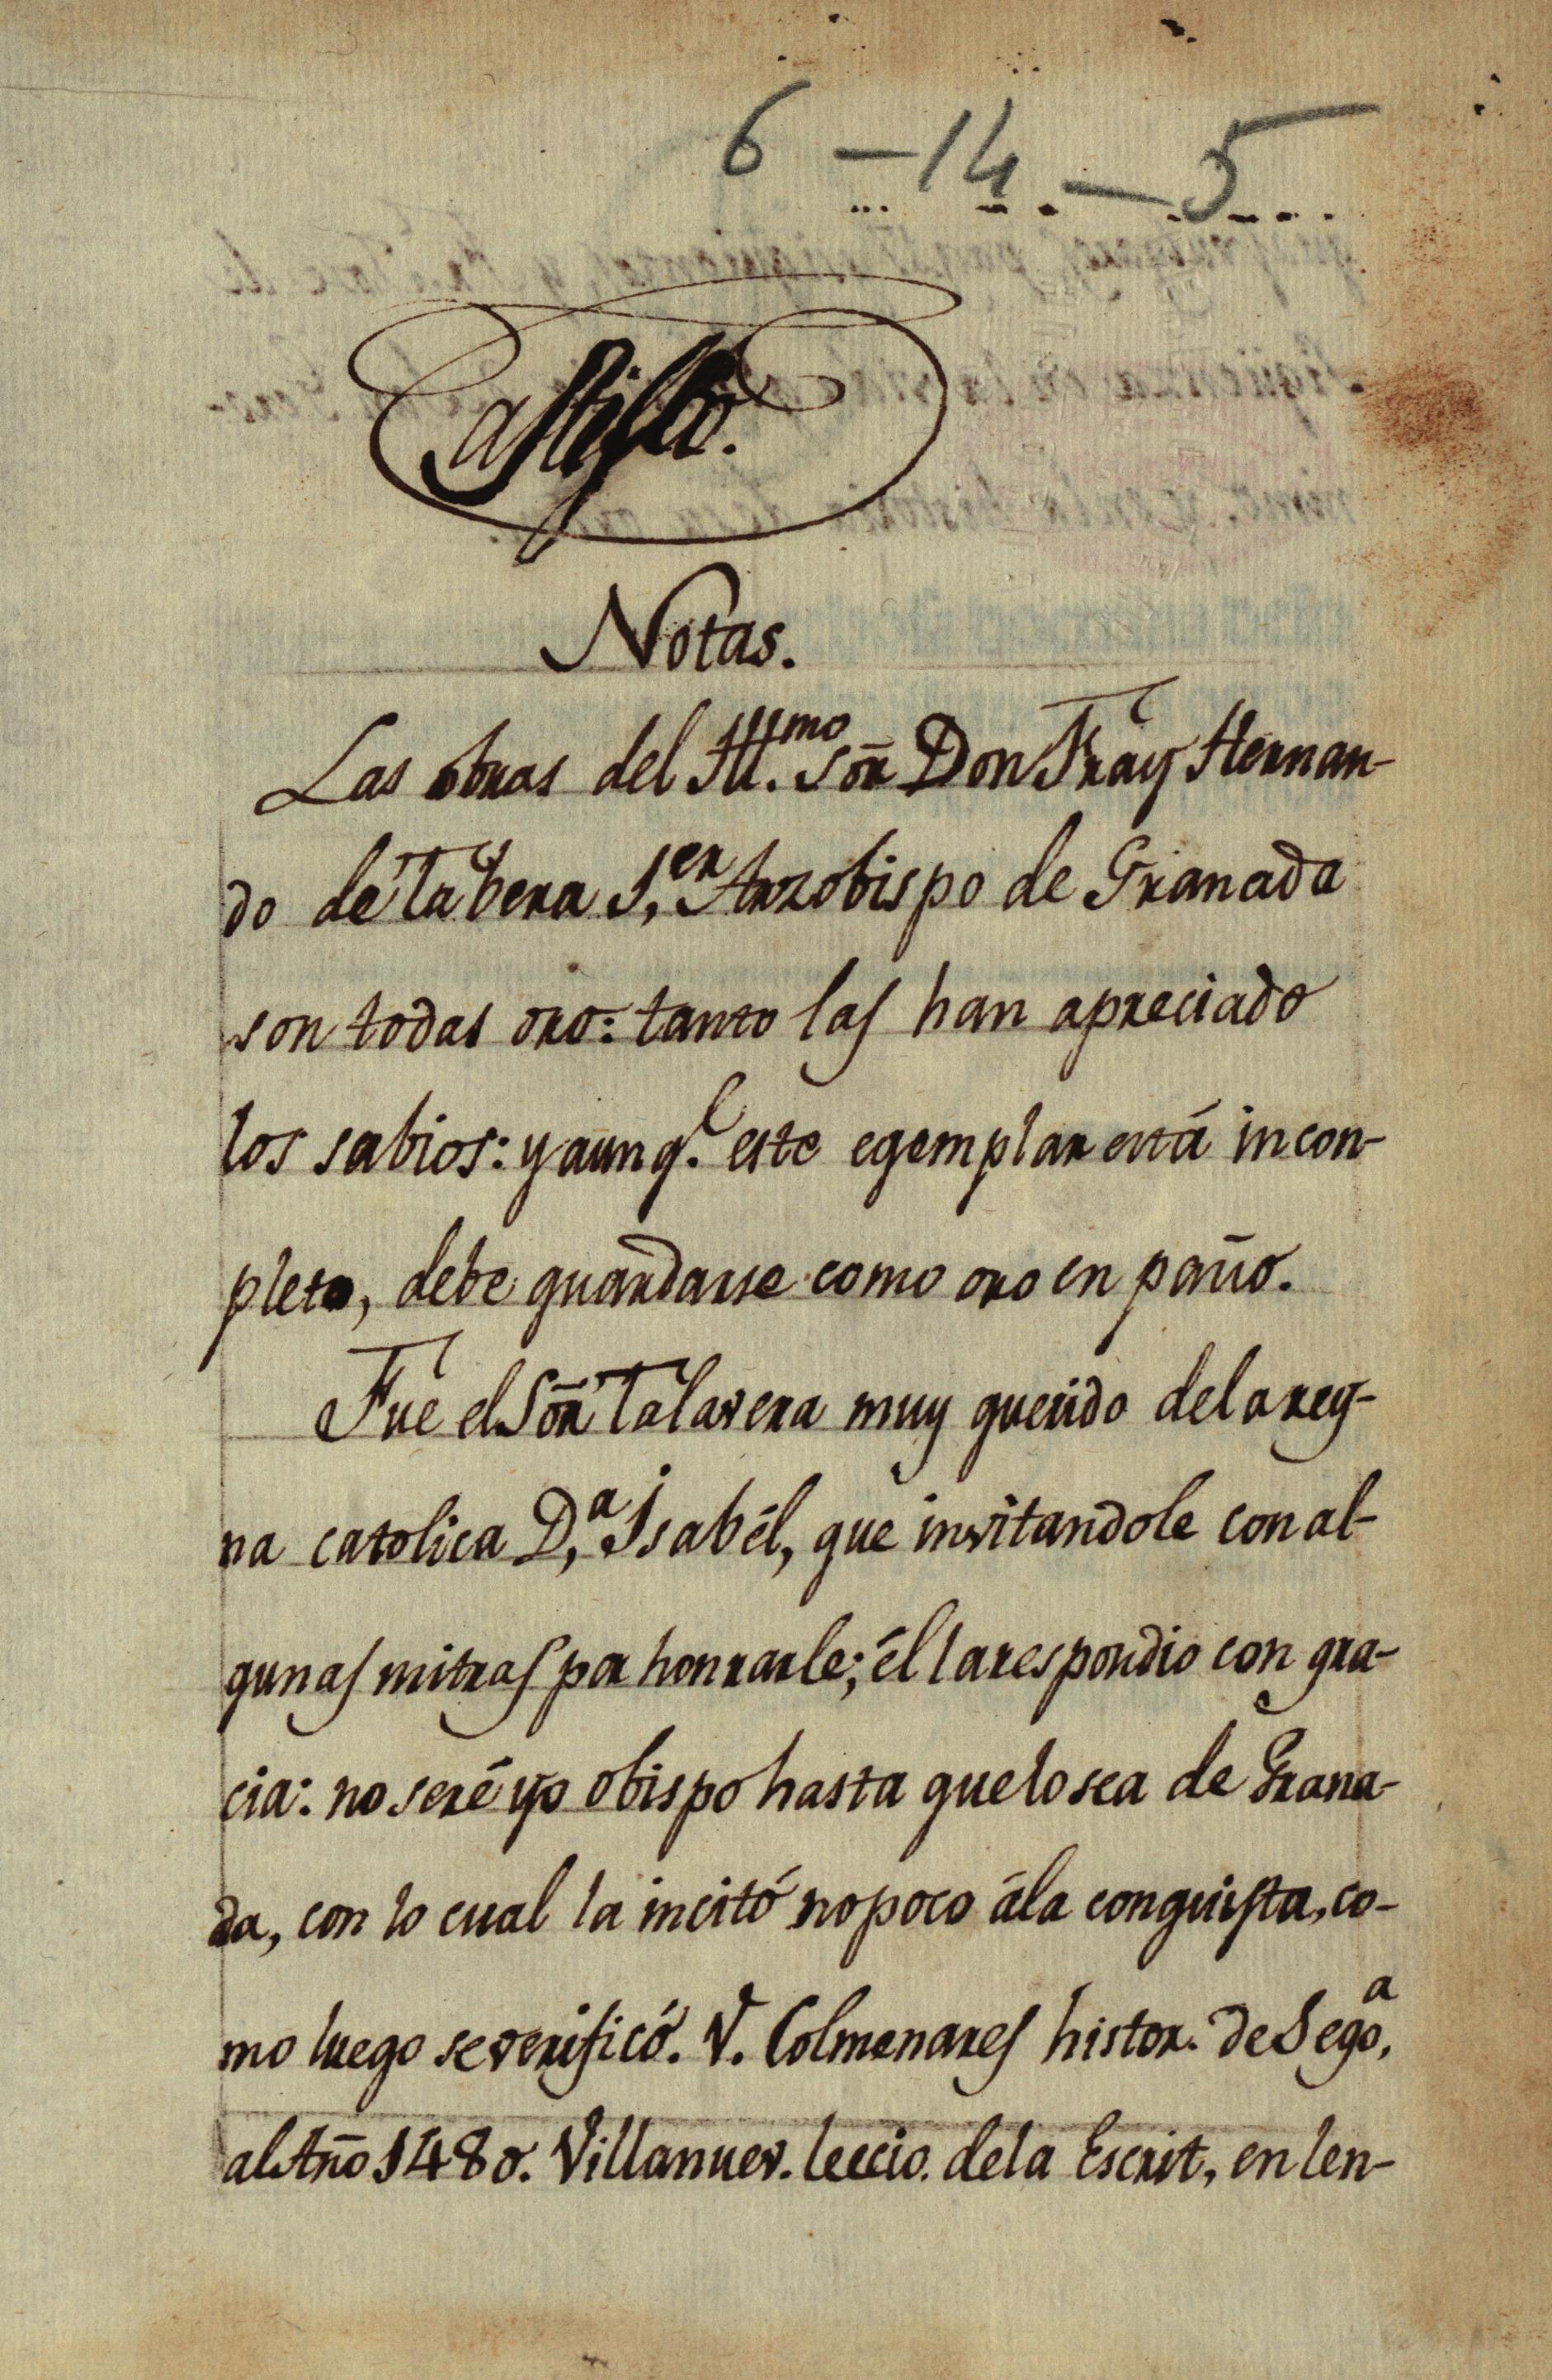 6 - 14 - 5
Castillo.
Notas.
Las obras del Ill.mo Sōr Don Fray Hernan-
do de Tabera 1.er Arzobispo de Granada
son todas oro: tanto las han apreciado
los sabios: y aunq.e este egemplar está incon-
pleto, debe guardarse como oro en paño.
Fue el Sōr Talavera muy querido dela rey-
na catolica D.a Isabél, que invitandole con al-
gunas mitras por honrarle; él la respondio con gra-
cia: no seré yo obispo hasta que lo sea de Grana-
da, con lo cual la incitó no poco ála conquista, co-
mo luego se verificó. V. Colmenares histor. de Sego.a
al Año 1480. Villanuev. leccio. dela Escrit, en len-